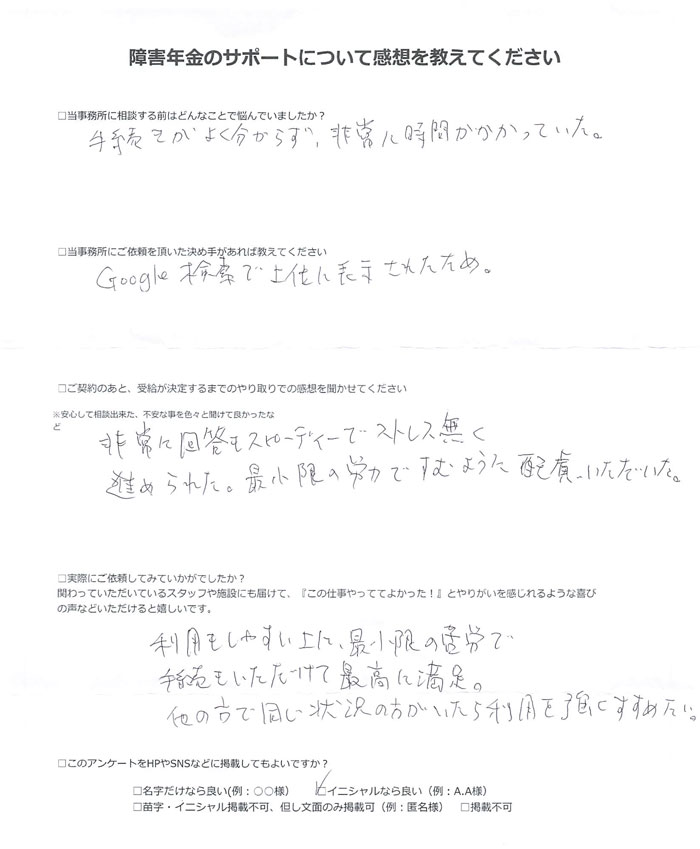 障害年金のサポートについて感想を教えてください
□当事務所に相談する前はどんなことで悩んでいましたか？
手続きがよく分からず、非常に時間がかかっていた。
□当事務所にご依頼を頂いた決め手があれば教えてください
Google 検索で上位に表示されたため。
□ご契約のあと、受給が決定するまでのやり取りでの感想を聞かせてください
※安心して相談出来た、不安な事を色々と聞けて良かったな
ど
非常に回答もスピーディーでストレス無く
進められた。最小限の労力ですむように配慮いただいた。
□実際にご依頼してみていかがでしたか？
関わっていただいているスタッフや施設にも届けて、『この仕事やっててよかった！』とやりがいを感じれるような喜び
の声などいただけると嬉しいです。
利用もしやすい上に、最小限の苦労で
手続きもいただけて最高に満足。
他の方で同じ状況の方がいたら利用を強くすすめたい。
□このアンケートをHPやSNSなどに掲載してもよいですか？
□名字だけなら良い(例：○○様） ☑イニシャルなら良い（例：A.A様）
□苗字・イニシャル掲載不可、但し文面のみ掲載可（例：匿名様） □掲載不可